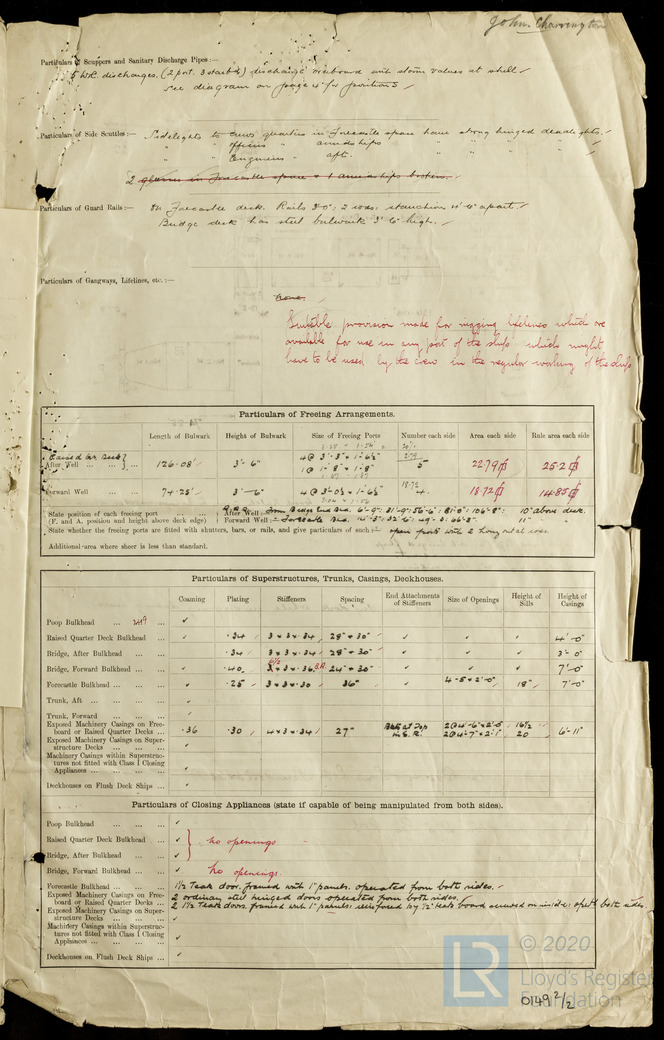 John Charrington
Particulars of Scuppers and Sanitary Discharge Pipes:—
5 W.C. discharges. (2 port. 3 starbd) discharge overboard with storm valves at shell
See diagram on page 4 for positions
Particulars of Side Scuttles:— Sidelights to crews quarters in Forecastle space have strong hinged deadlights.
" " officers " amidships " " "
" " Engineers " aft. " " "
2 glasses in Forecastle space & 1 amidships broken.
Particulars of Guard Rails:— On Forecastle deck. Rails 3'0": 2 rods: stanchions 4'-6" apart.
Bridge deck has steel bulwark 3'-6" high.
Particulars of Gangways, Lifelines, etc.:—
None.
Suitable provision made for rigging lifelines which are
available for use in any part of the ship which might
have to be used by the crew in the regular working of the ship
Particulars of Freeing Arrangements.
Length of Bulwark Height of Bulwark Size of Freeing Ports Number each side Area each side Rule area each side
Raised Qr. Deck
After Well ... ... 126.08' 3'-6" 4 @ 3'-3" x 1'-6½" 5 22.79 25.2
1 @ 1'-8" x 1'-8"
Forward Well ... ... 74.25' 3'-6" 4 @ 3'-0½ x 1'-6½" 18.72 4. 18.72 14.85
State position of each freeing port ... ... After Well:— From Bridge End Bhd. 6'-9": 31'-9": 56'-6": 81'-0": 106'-8": 10" above deck.
(F. and A. position and height above deck edge) Forward Well:— Forecastle Bhd. 14'-3": 32'-6": 49'-3: 66'-3" 11" "
State whether the freeing ports are fitted with shutters, bars, or rails, and give particulars of such:— open ports with 2 horizontal rods.
Additional area where sheer is less than standard.
Particulars of Superstructures, Trunks, Casings, Deckhouses.
Coaming Plating Stiffeners Spacing End Attachments of Stiffeners Size of Openings Height of Sills Height of Casings
Poop Bulkhead ... ...
Raised Quarter Deck Bulkhead ... .34 3 x 3 x .34 28" + 30" 4'-0"
Bridge, After Bulkhead ... ... .34 3 x 3 x .34 28" + 30" 3'-0
Bridge, Forward Bulkhead ... ... .40 6½ x 3 x .36 B.A. 24" + 30" 7'-0"
Forecastle Bulkhead ... ... .25 3 x 3 x .30 36" 4-5 x 2'-0" 18" 7'-0
Trunk, Aft ... ... ...
Trunk, Forward ... ... ...
Exposed Machinery Casings on Free-
board or Raised Quarter Decks ... .36 .30 4 x 3 x .34 27" Bkts at Top in E.R. 2 @ 4'-6" x 2'-0 16½ 6'-11"
2 @ 4'-7" x 2'-1" 20
Exposed Machinery Casings on Super-
structure Decks ... ...
Machinery Casings within Superstruc-
tures not fitted with Class I Closing
Appliances ... ... ...
Deckhouses on Flush Deck Ships ...
Particulars of Closing Appliances (state if capable of being manipulated from both sides).
Poop Bulkhead ... ... ...
Raised Quarter Deck Bulkhead ... no openings
Bridge, After Bulkhead ... ...
Bridge, Forward Bulkhead ... ... no openings.
Forecastle Bulkhead ... ... 1½ Teak door, framed with 1" panels. operated from both sides.
Exposed Machinery Casings on Free-
board or Raised Quarter Decks ... 2 ordinary steel hinged doors operated from both sides.
2 1½ Teak doors. framed with 1" panels: reinforced by ½" teak board secured on inside: opetd both sides.
Exposed Machinery Casings on Super-
structure Decks ... ...
Machinery Casings within Superstruc-
tures not fitted with Class I Closing
Appliances ... ... ...
Deckhouses on Flush Deck Ships ...
LR © 2020
Lloyd's Register
Foundation
0149 2/2